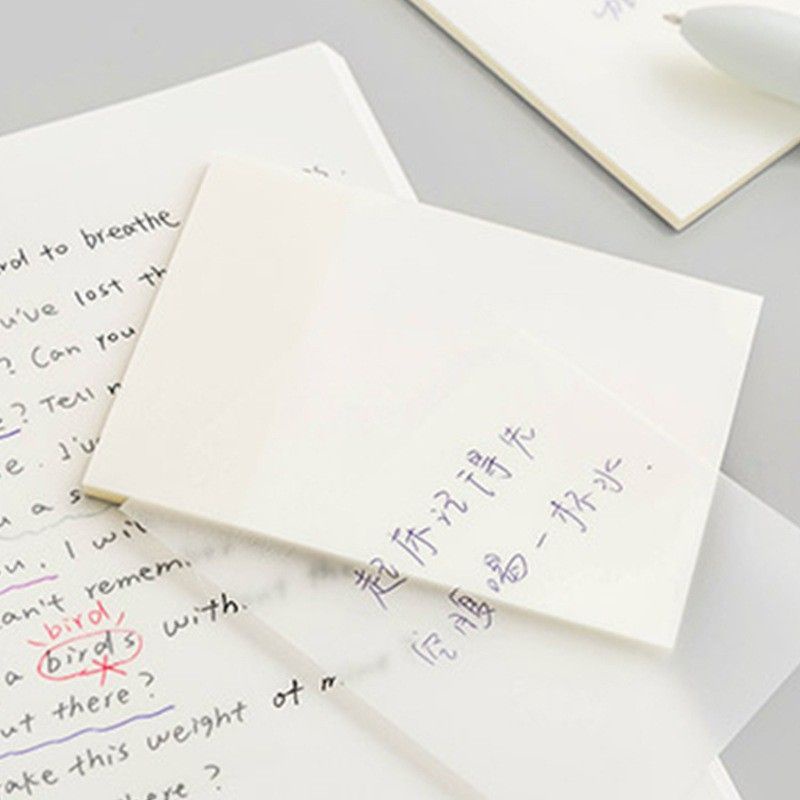 to breathe
u've lost th
? Can you
? Tell
e. I'v
u a s
ou. I wil
an't remem
bird
a birds with
ut there?
ake this weight of m
here?
起床记得先
空腹喝一杯水.